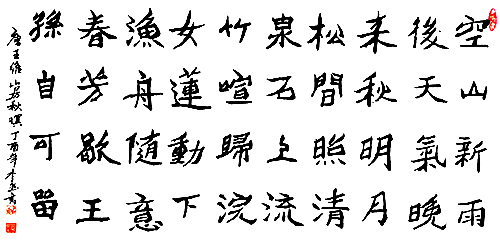 空山新雨
後天氣晚
来秋明月
松間照清
泉石上流
竹喧歸浣
女蓮動下
漁舟隨意
春芳歇王
孫自可留
唐王維山居秋暝丁酉年